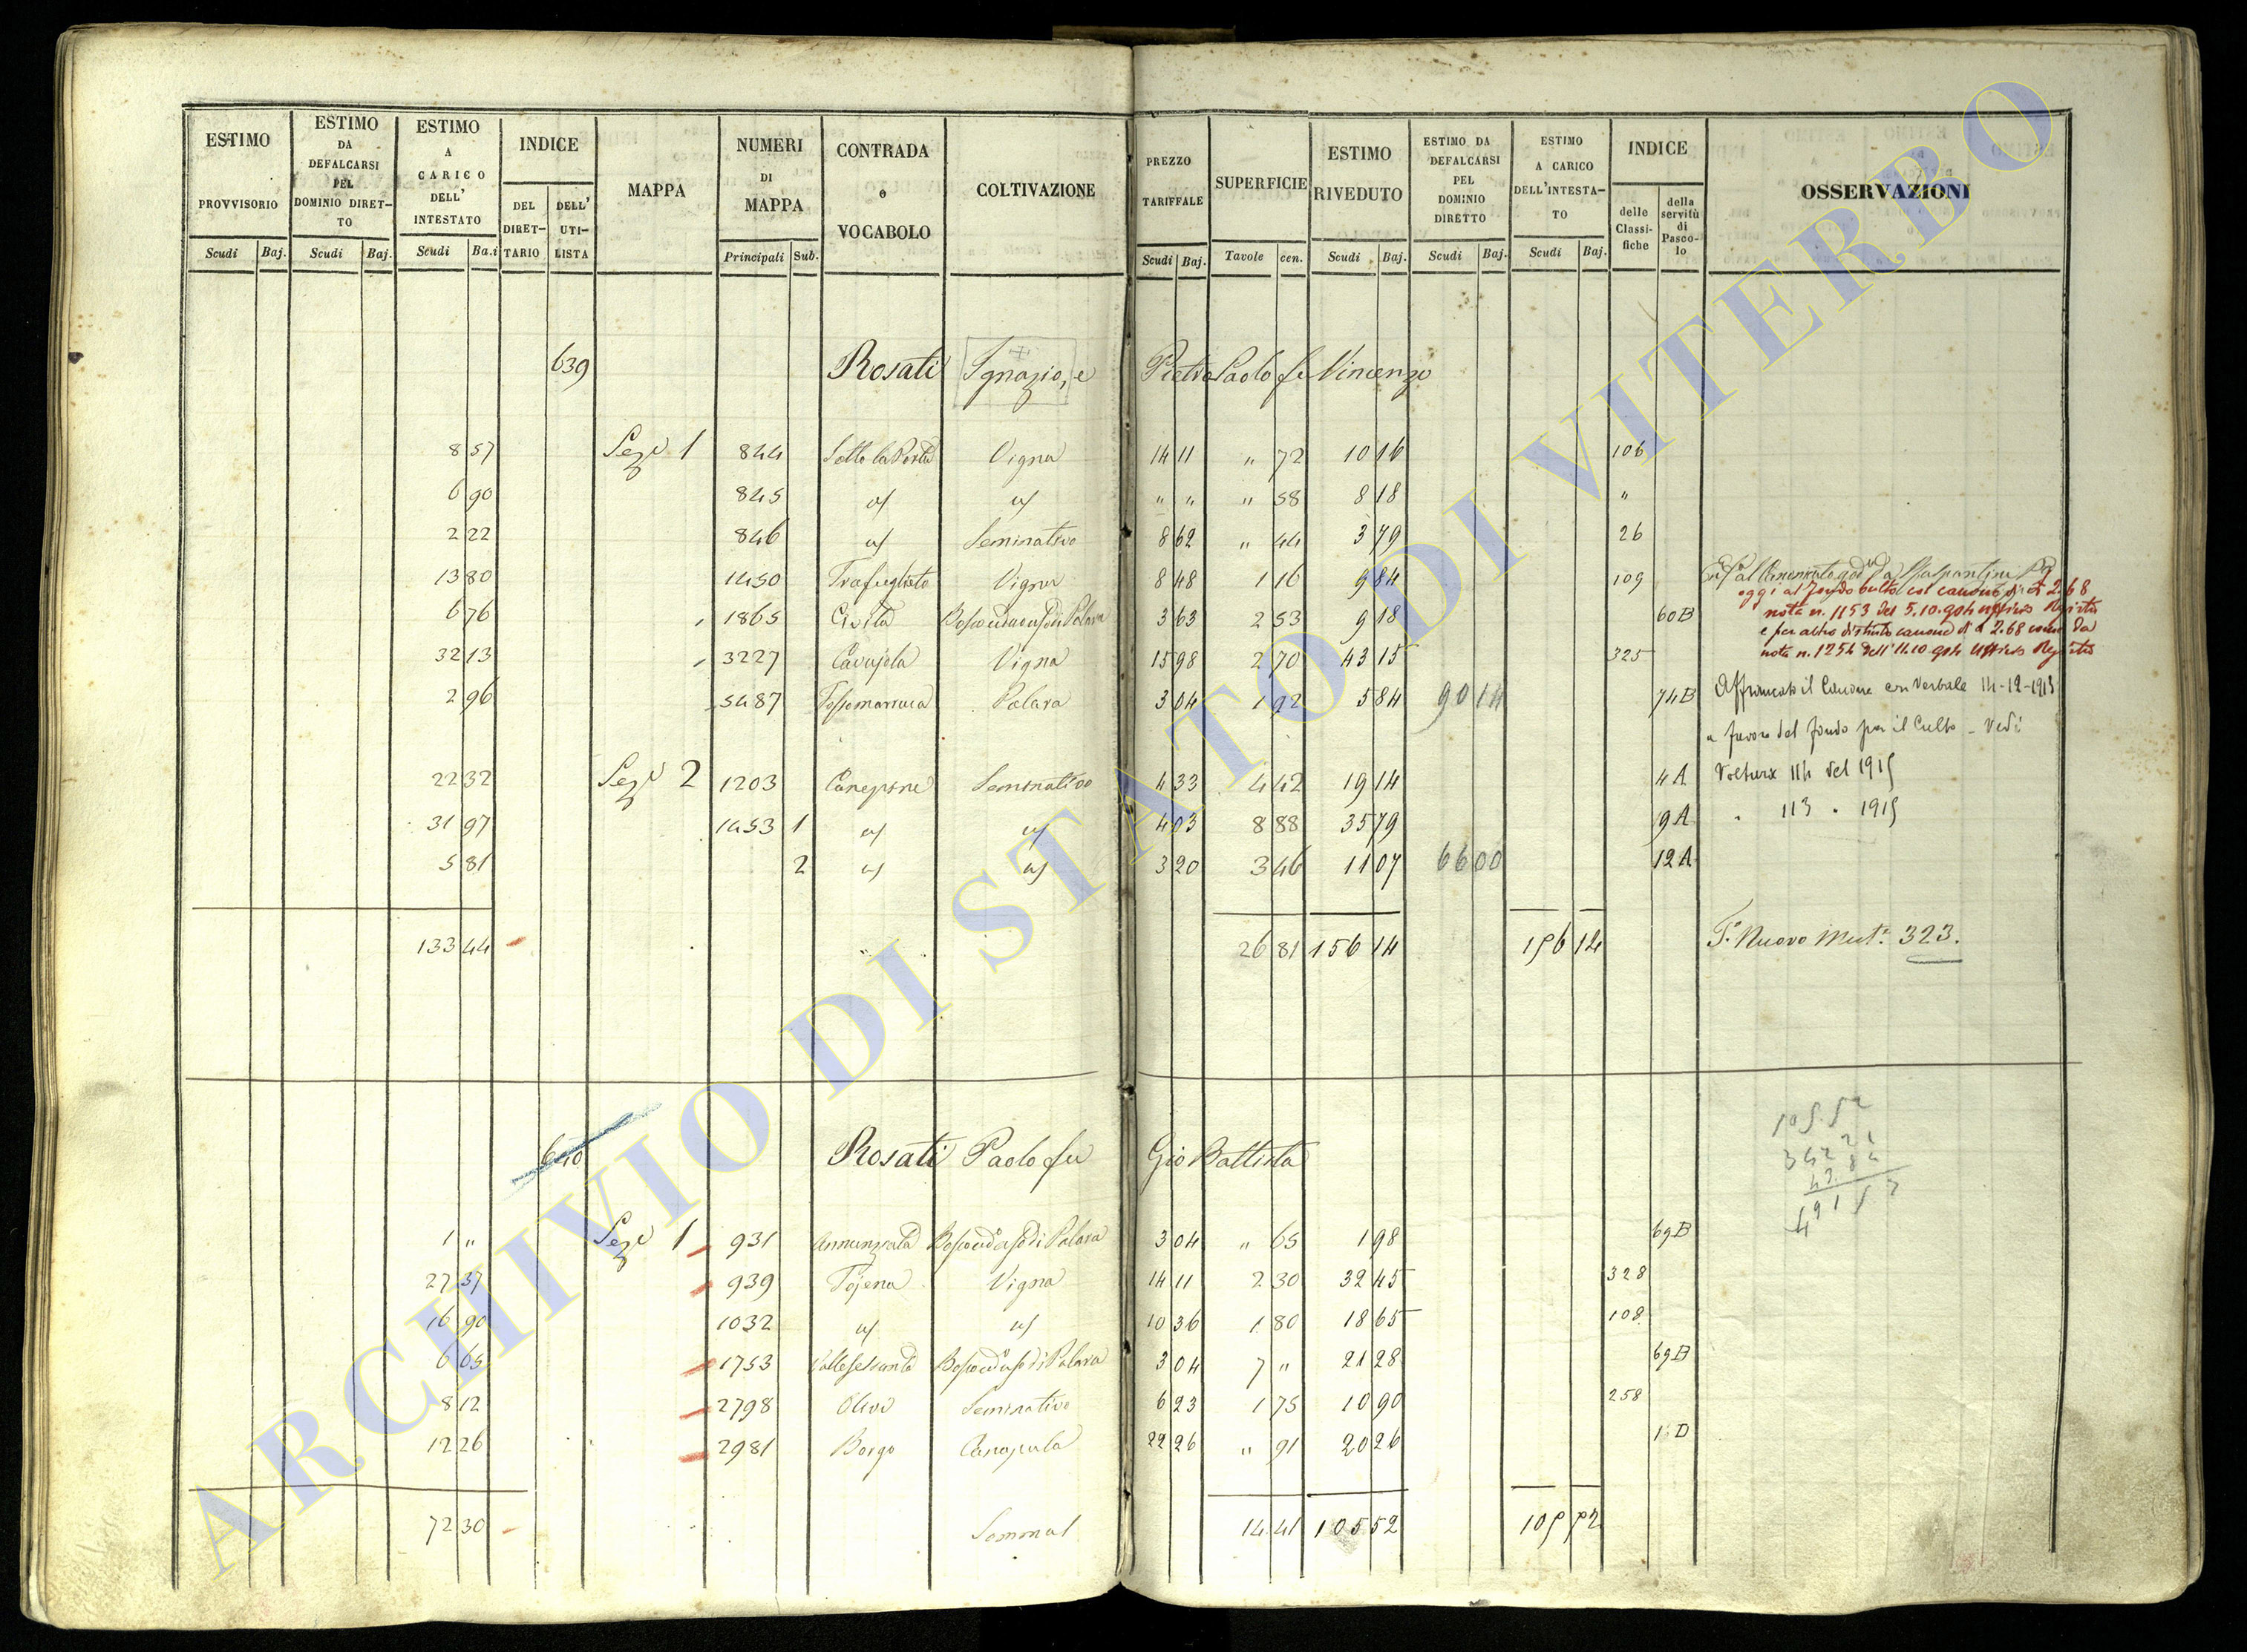 ESTIMO PROVVISORIO
Scudi Baj.
ESTIMO DA DEFALCARSI PEL DOMINIO DIRET- TO
Scudi Baj.
ESTIMO A CARICO DELL' INTESTATO
Scudi Ba.i
INDICE
DEL DIRET- TARIO
DELL' UTI- LISTA
MAPPA
NUMERI DI MAPPA
Principali Sub.
CONTRADA o VOCABOLO
COLTIVAZIONE
PREZZO TARIFFALE
Scudi Baj.
SUPERFICIE
Tavole cen.
ESTIMO RIVEDUTO
Scudi Baj.
ESTIMO DA DEFALCARSI PEL DOMINIO DIRETTO
Scudi Baj.
ESTIMO A CARICO DELL'INTESTA- TO
Scudi Baj.
INDICE
delle Classi- fiche
della servitù di Pasco- lo
OSSERVAZIONI
639 Rosati Ignazio, e Pietro Paolo fu Vincenzo
8 57 Seze 1 844 Sotto la Porta Vigna 14 11 " 72 10 16 106
6 90 845 " " " 58 8 18 "
2 22 846 Seminativo 8 62 " 44 3 79 26
13 80 1450 Vigna 8 48 1 16 9 84 109
6 76 1865 Civita 3 63 2 53 9 18 60B
oggi al fondo culto col canone di 2.68
nota n. 1153 del 5.10.904 ufficio Registro
e per altro distinto canone di 2.68 come da
32 13 3227 Cavajola Vigna 15 98 2 70 43 15 325
nota n. 1254 dell' 11.10 904 Ufficio Registro
2 96 5487 Fossomarruca Palara 3 04 1 92 5 84 90 14 74B Affrancato il Canone con Verbale 14-12-1913
a favore del fondo per il Culto - Vedi
22 32 Seze 2 1203 Canepine Seminativo 4 33 4 42 19 14 4A Voltura 114 del 1915
31 97 1453 1 4 03 8 88 35 79 9A " 113 " 1915
5 81 2 3 20 3 46 11 07 66 00 12A
133 44 26 81 156 14 156 14 Nuovo 323.
640 Rosati Paolo fu Gio Battista
1 " Seze 1 931 Annunziata 3 04 " 65 1 98 69B
27 37 939 Fojena Vigna 14 11 2 30 32 45 328
16 90 1032 10 36 1 80 18 65 108
6 65 1753 3 04 7 " 21 28 69B
8 12 2798 Olivo Seminativo 6 23 1 75 10 90 258
12 26 2981 Borgo Canapula 22 26 " 91 20 26
72 30 14 41 105 52 105 52
ARCHIVIO DI STATO DI VITERBO